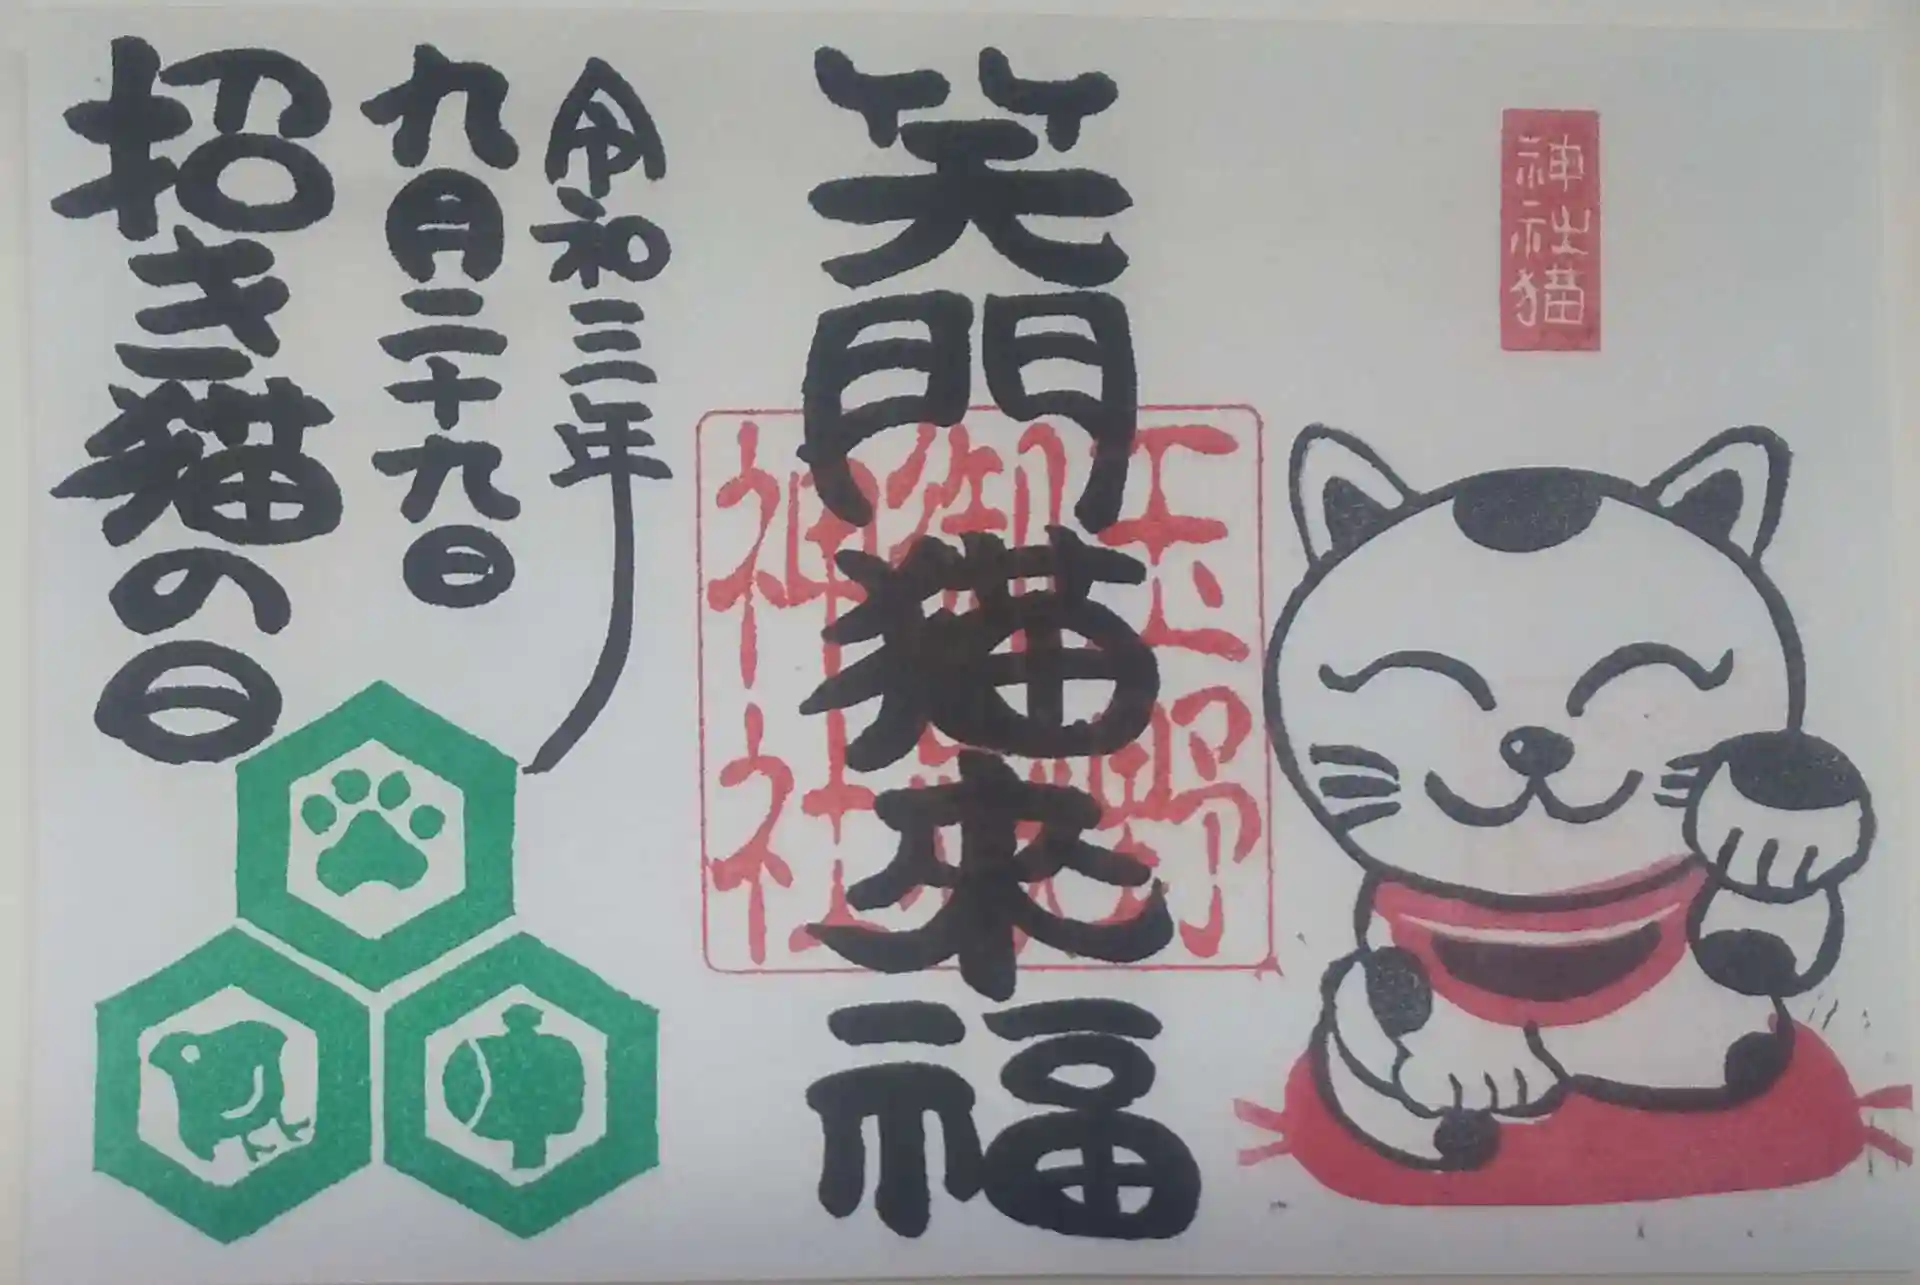 神社猫
笑門猫来福
玉野
御嶽
神社
令和三年
九月二十九日
招き猫の日